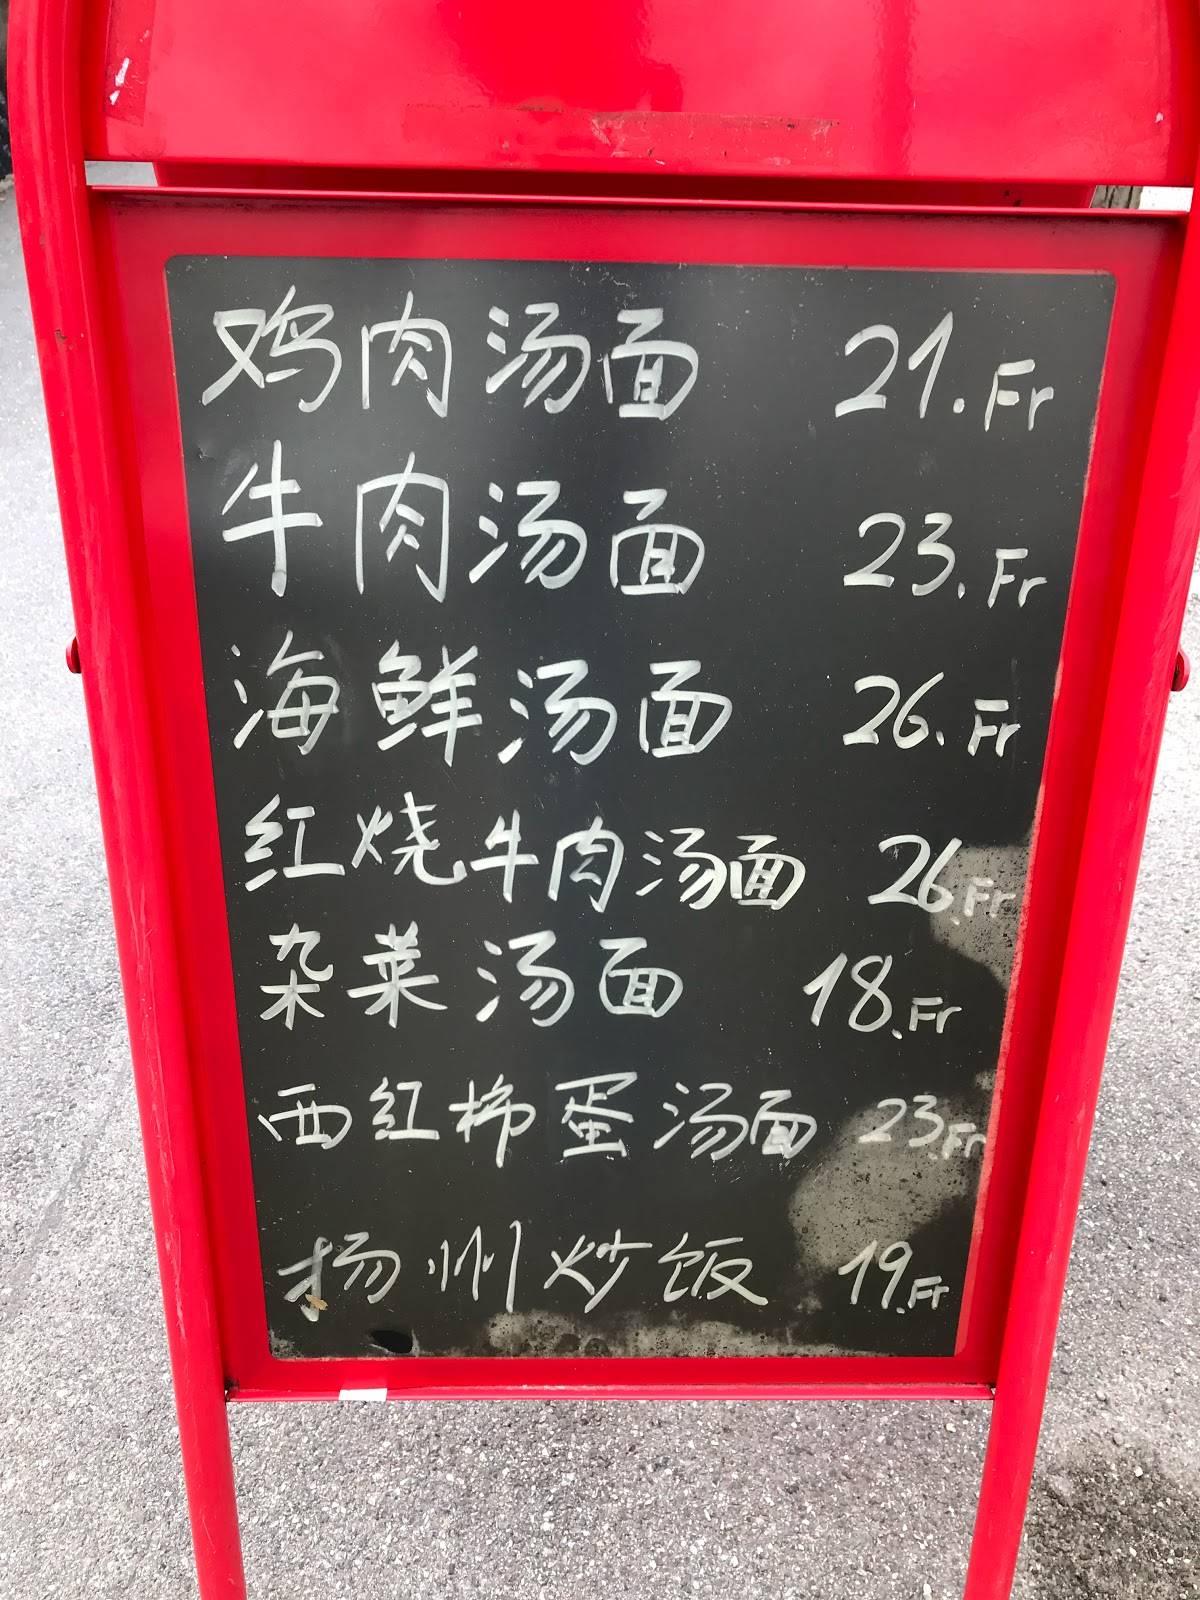 鸡肉汤面 21.Fr
牛肉汤面 23.Fr
海鲜汤面 26.Fr
红烧牛肉汤面 26.Fr
杂菜汤面 18.Fr
西红柿蛋汤面 23.Fr
扬州炒饭 19.Fr